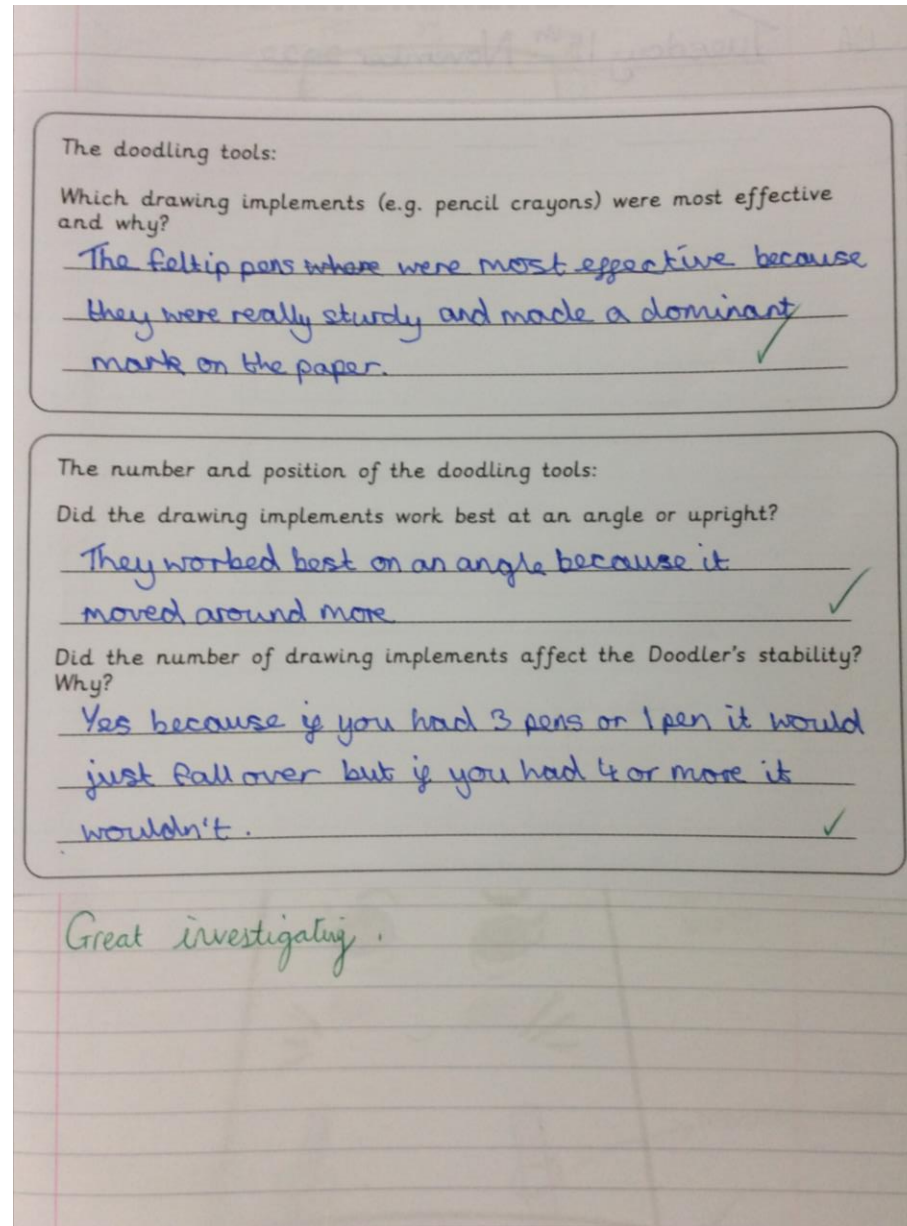 Tuesday 15th November 2022
The doodling tools:
Which drawing implements (e.g. pencil crayons) were most effective
and why?
The feltip pens where were most effective because
they were really sturdy and made a dominant
mark on the paper.
The number and position of the doodling tools:
Did the drawing implements work best at an angle or upright?
They worked best on an angle because it
moved around more
Did the number of drawing implements affect the Doodler's stability?
Why?
Yes because if you had 3 pens or 1 pen it would
just fall over but if you had 4 or more it
wouldn't.
Great investigating.